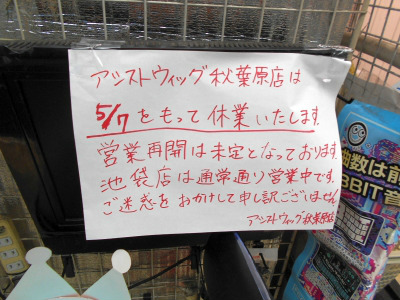 アシストウィッグ秋葉原店は
5/7をもって休業いたします。
営業再開は未定となっております。
池袋店は通常通り営業中です。
ご迷惑をおかけして申し訳ございません
アシストウィッグ秋葉原店
数は前
BIT